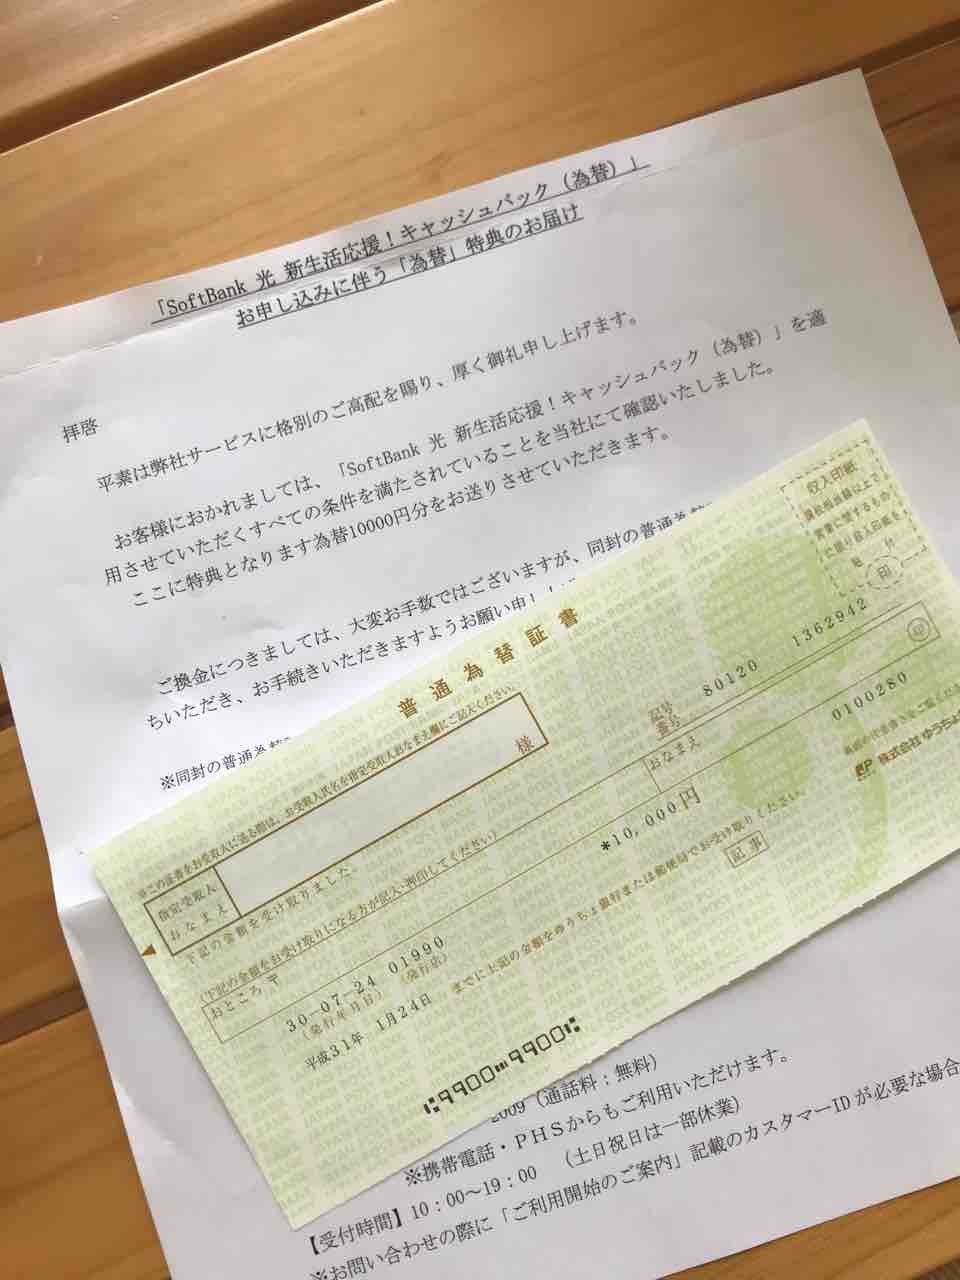 「SoftBank 光 新生活応援！キャッシュバック（為替）」
お申し込みに伴う「為替」特典のお届け
拝啓
平素は弊社サービスに格別のご高配を賜り、厚く御礼申し上げます。
お客様におかれましては、「SoftBank 光 新生活応援！キャッシュバック（為替）」を適
用させていただくすべての条件を満たされていることを当社にて確認いたしました。
ここに特典となります為替10000円分をお送りさせていただきます。
ご換金につきましては、大変お手数ではございますが、同封の普通為替
ちいただき、お手続きいただきますようお願い申し上
※同封の普通為替
普通為替証書
収入印紙
印
※この証書をお受取人に送る際は、お受取人氏名を指定受取人おなまえ欄にご記入ください。
指定受取人
おなまえ
様
記号
番号
80120 1362942
下記の金額を受け取りました。
（下記の金額をお受け取りになる方が記入・押印してください）
おところ 〒
おなまえ
印
0100280
*10,000円
30-07-24 01990
（発行年月日） （発行店）
平成31年 1月24日 までに上記の金額をゆうちょ銀行または郵便局でお受け取りください。
記事
株式会社ゆうちょ
2009（通話料：無料）
※携帯電話・PHSからもご利用いただけます。
【受付時間】10：00～19：00 （土日祝日は一部休業）
※お問い合わせの際に「ご利用開始のご案内」記載のカスタマーIDが必要な場合